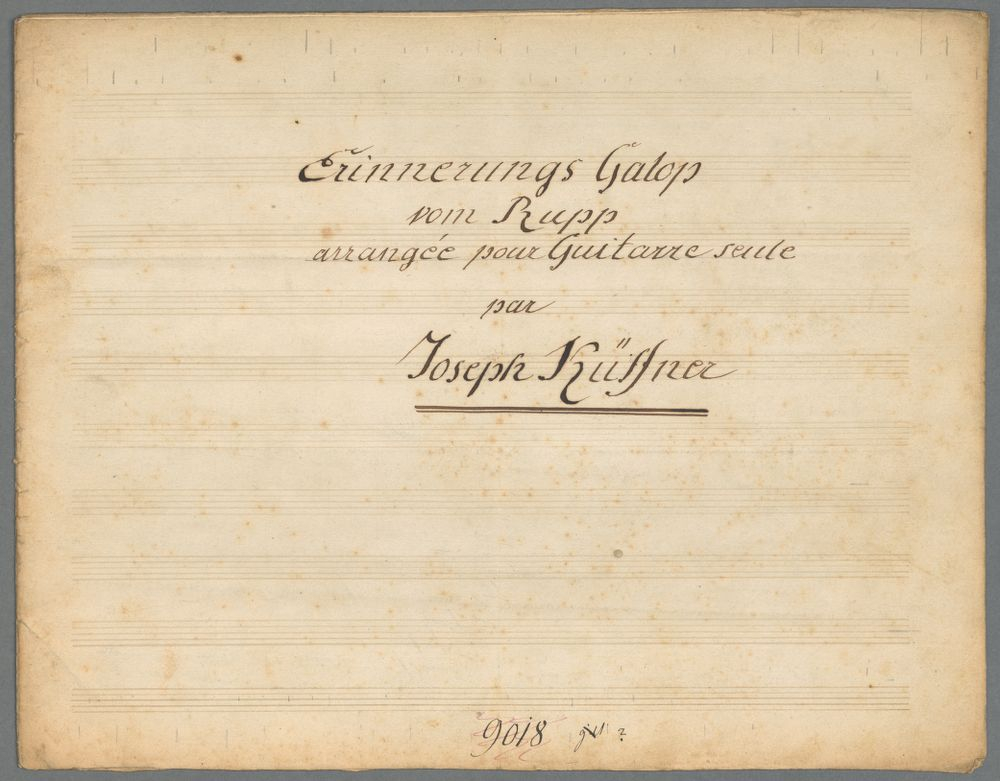 Erinnerungs Galop
vom Rupp
arrangée pour Guitarre seule
par
Joseph Küffner
9018 ?